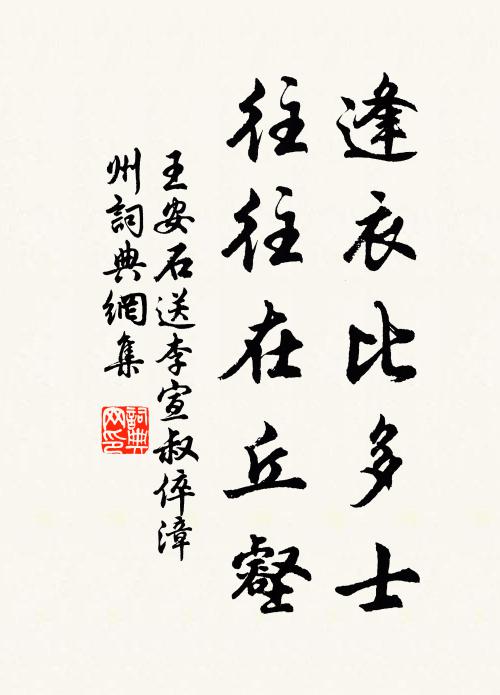 逢衣比多士
往往在丘壑
王安石送李宣叔倅漳
州詞典網集
詞典
网印